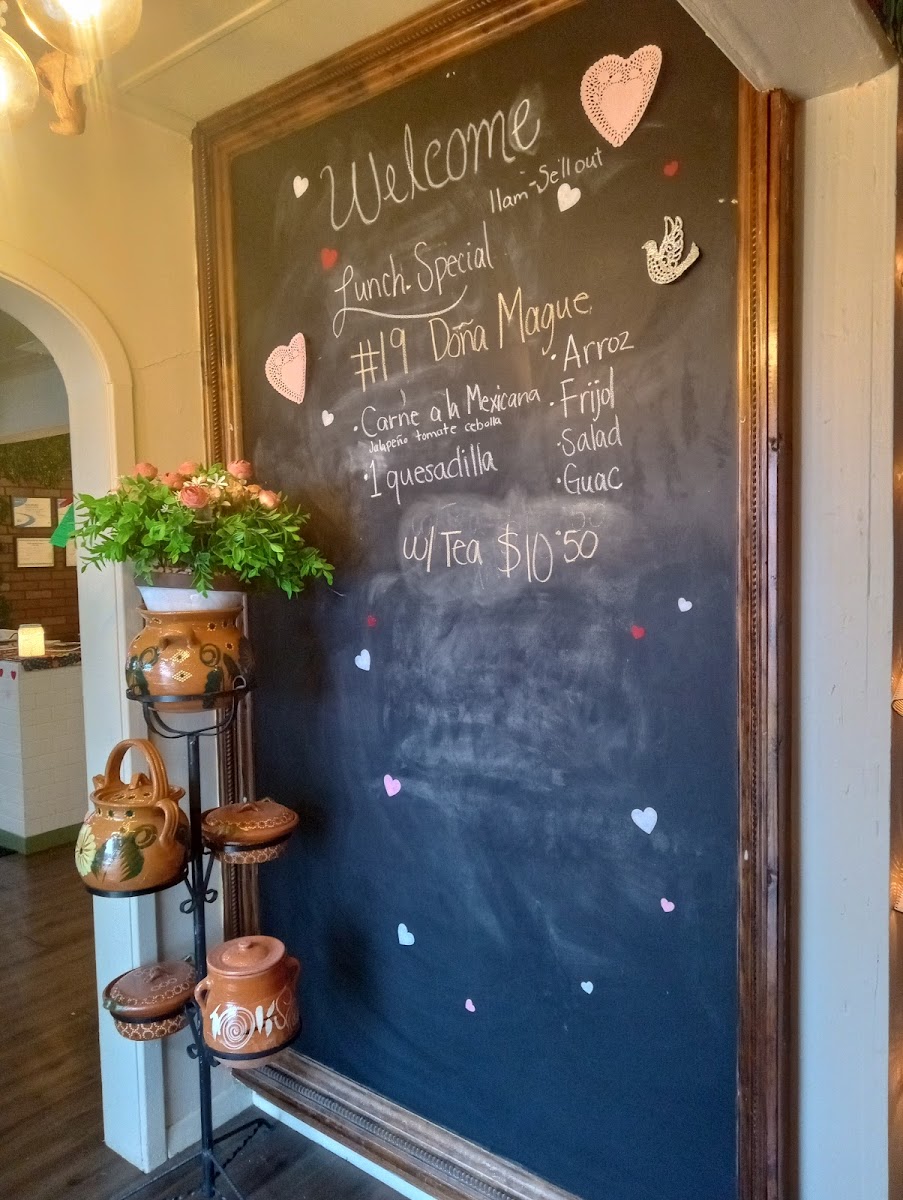 Welcome
11am-Sellout
Lunch Special
#19 Doña Mague
·Carne a la Mexicana
Jalapeño tomate cebolla
·1 quesadilla
·Arroz
·Frijol
·Salad
·Guac
w/ Tea $10.50